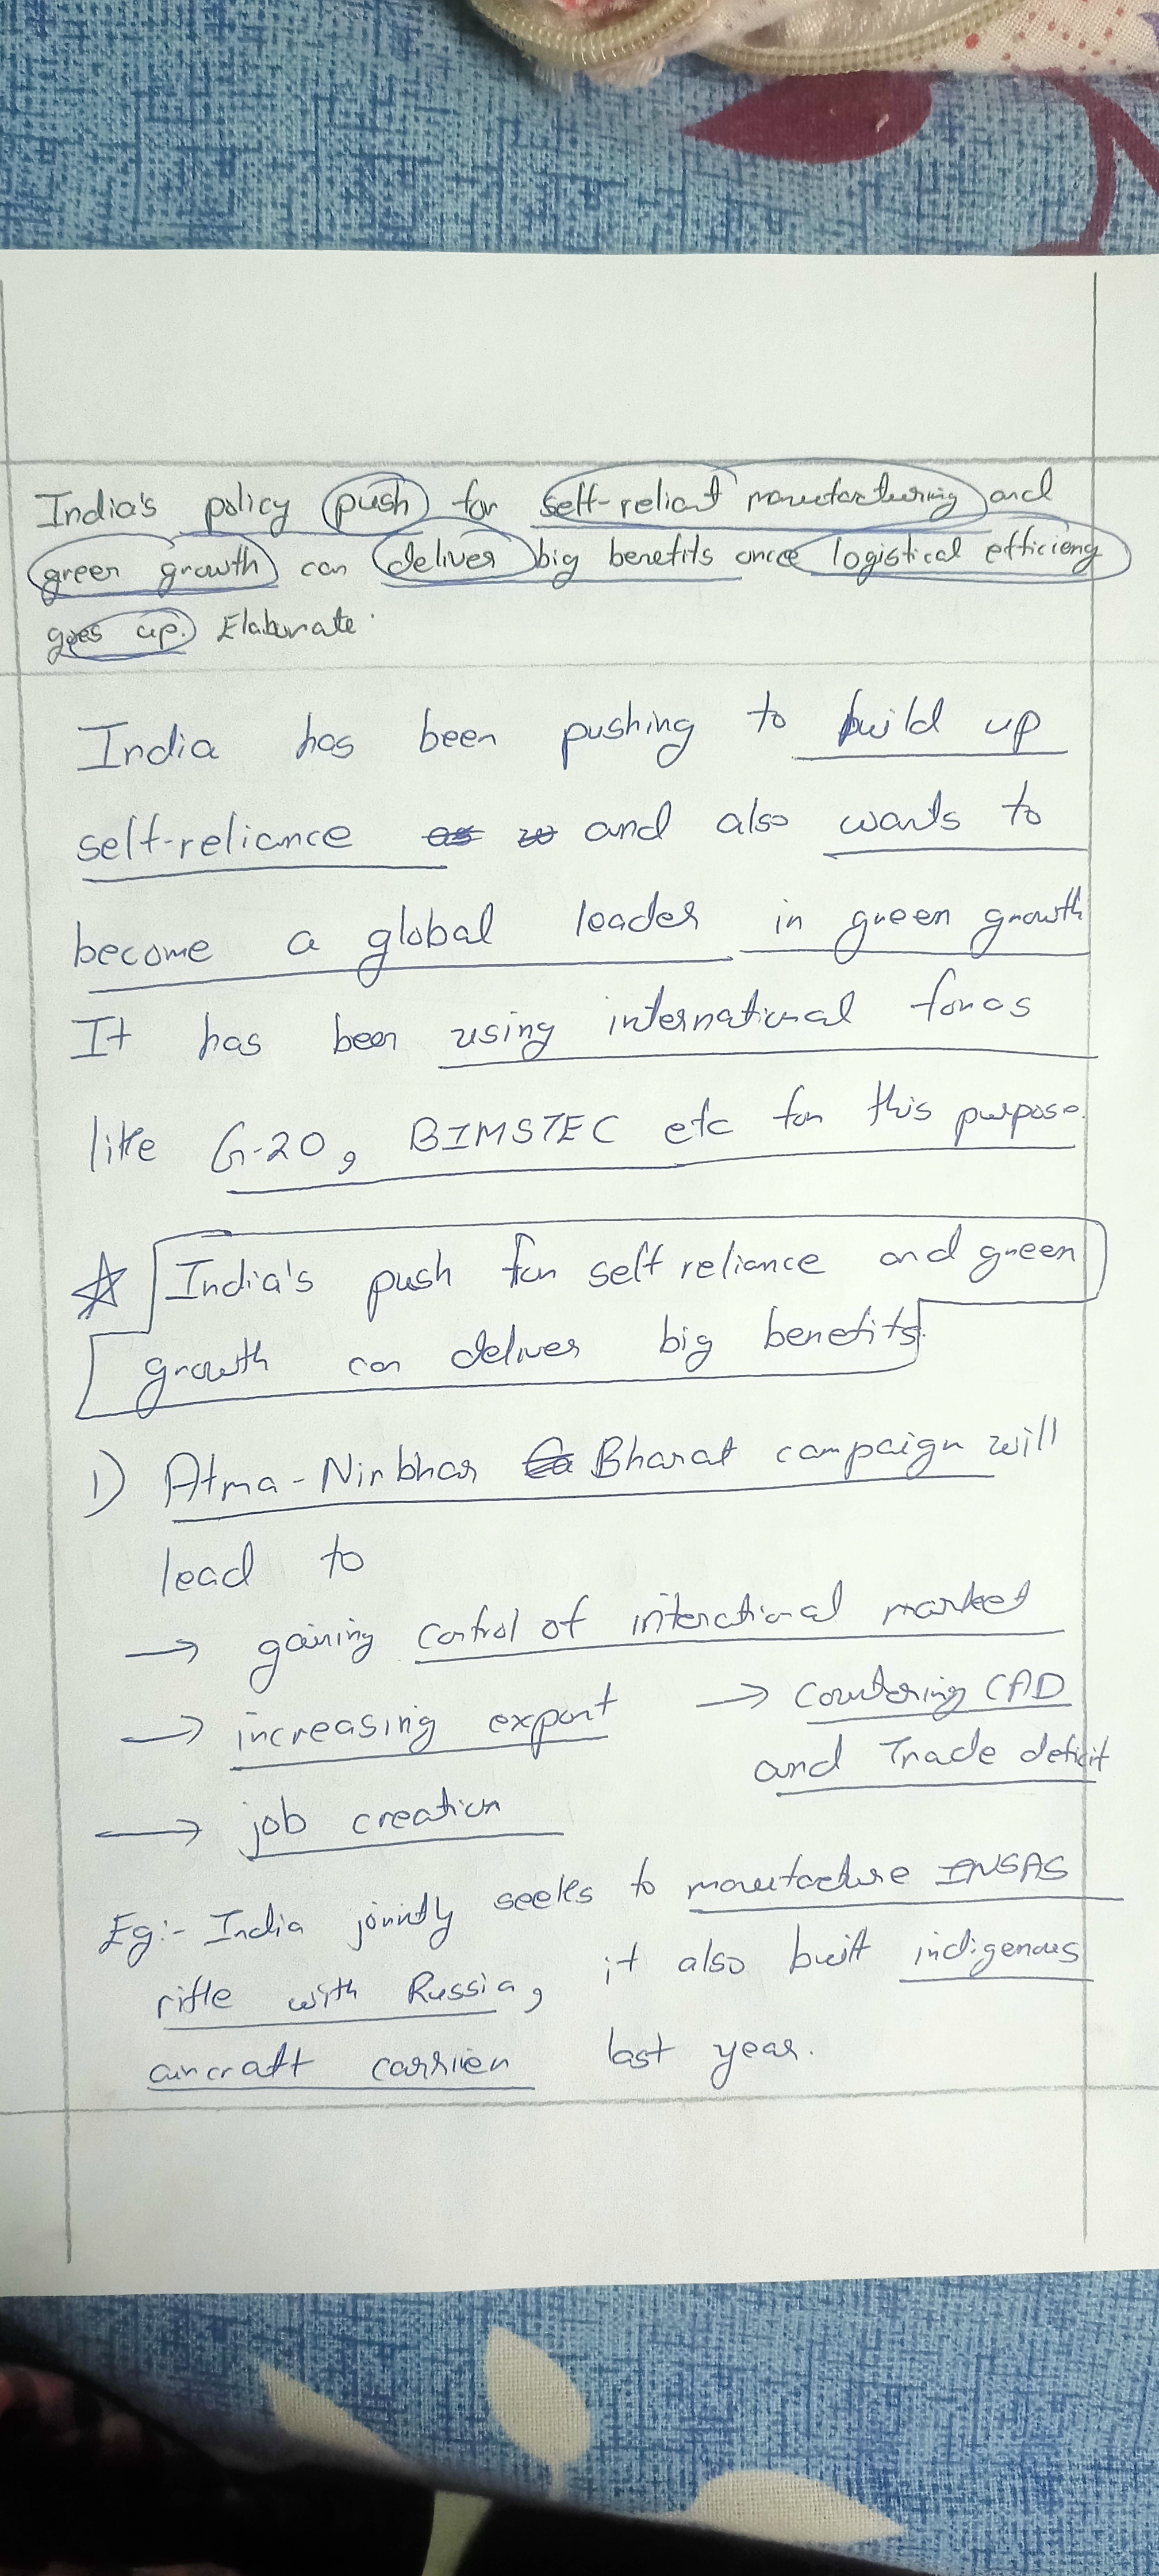 India's policy push for self-reliant manufacturing and
green growth can deliver big benefits once logistical efficiency
goes up. Elaborate.
India has been pushing to build up
self-reliance and also wants to
become a global leader in green growth
It has been using international foras
like G-20, BIMSTEC etc for this purpose.
India's push for self reliance and green
growth can deliver big benefits.
1) Atma-Nirbhar Bharat campaign will
lead to
→ gaining control of international market
→ increasing export → Countering CAD
and Trade deficit
→ job creation
Eg:- India jointly seeks to manufacture INSAS
rifle with Russia, it also built indigenous
aircraft carrier last year.